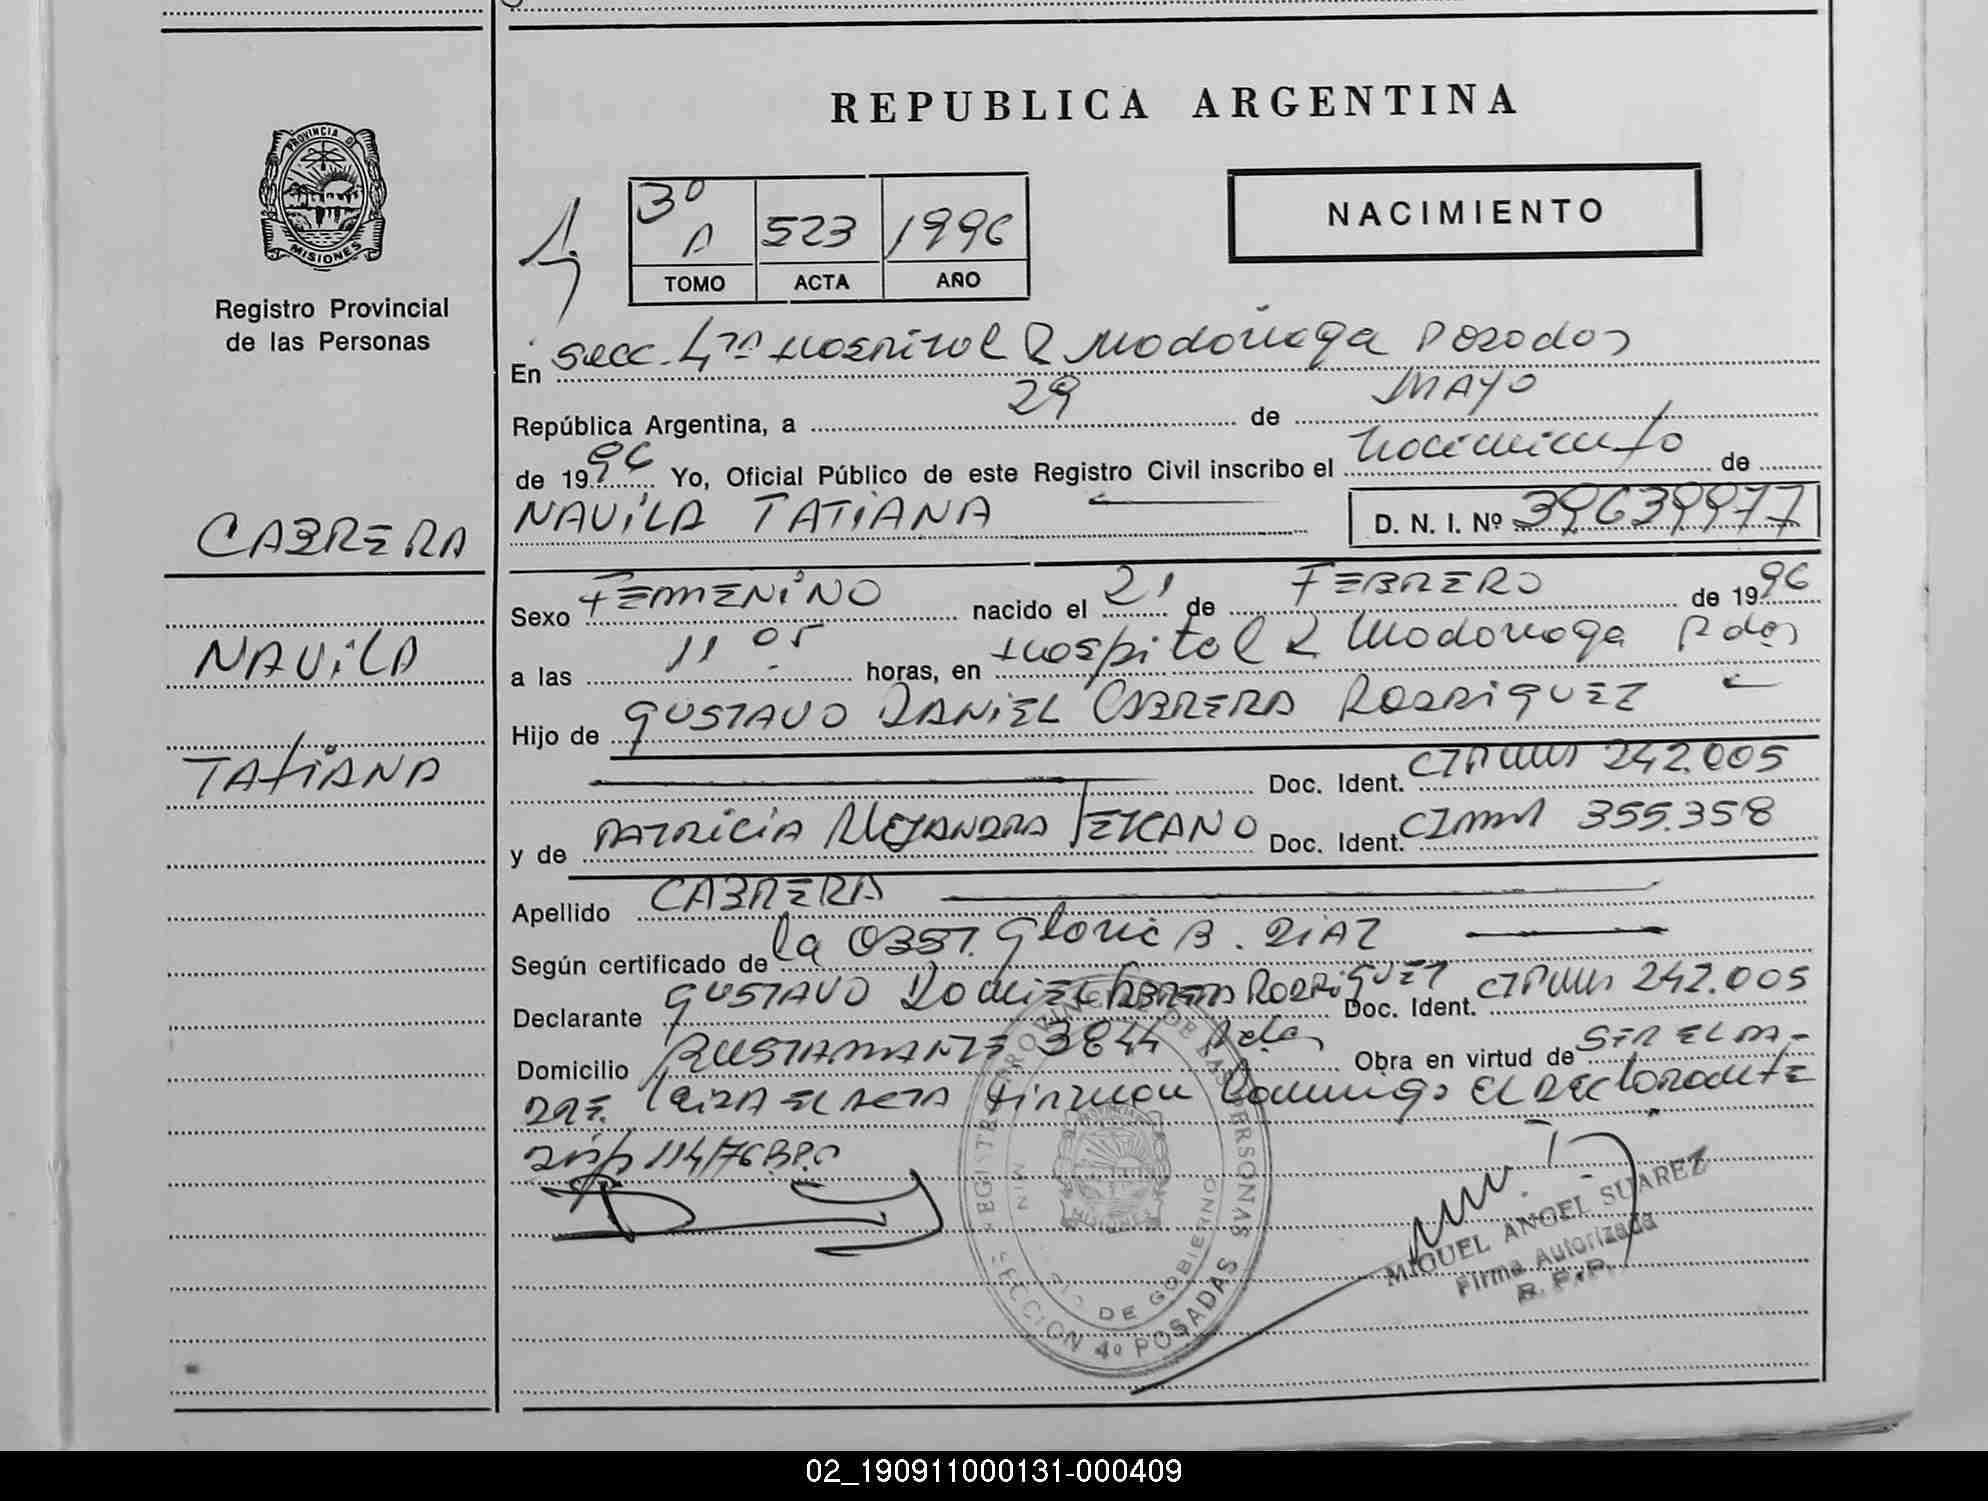 REPUBLICA ARGENTINA
PROVINCIA D
MISIONES
Registro Provincial
de las Personas
3º
A 523 1996
TOMO ACTA AÑO
NACIMIENTO
En Secc. 4ta Hospital R Madariaga Posadas
República Argentina, a 29 de MAYO
de 1996 Yo, Oficial Público de este Registro Civil inscribo el nacimiento de
NAVILA TATIANA D. N. I. Nº 39639977
CABRERA
NAVILA
TATIANA
Sexo FEMENINO nacido el 21 de FEBRERO de 1996
a las 11 05 horas, en Hospital R Madariaga Pdas
Hijo de GUSTAVO DANIEL CABRERA RODRIGUEZ
Doc. Ident. 242.005
y de PATRICIA ALEJANDRA Doc. Ident. 355.358
Apellido CABRERA
Según certificado de la OBST. Gloria B. DIAZ
Declarante GUSTAVO DANIEL CABRERA RODRIGUEZ Doc. Ident. 242.005
Domicilio BUSTAMANTE 3844 Pdas Obra en virtud de SER EL PA-
DRE. Leida EL ACTA Firman El DEClarante
Disp 114/76
REGISTRO PROVINCIAL DE LAS PERSONAS
DE GOBIERNO
MISIONES
SECCION 4º POSADAS
MIGUEL ANGEL SUAREZ
Firma Autorizada
R. P. P.
02_190911000131-000409